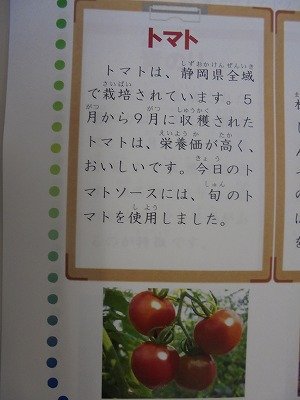 トマト
トマトは、静岡県全域
で栽培されています。5
月から9月に収穫された
トマトは、栄養価が高く、
おいしいです。今日のト
マトソースには、旬のト
マトを使用しました。